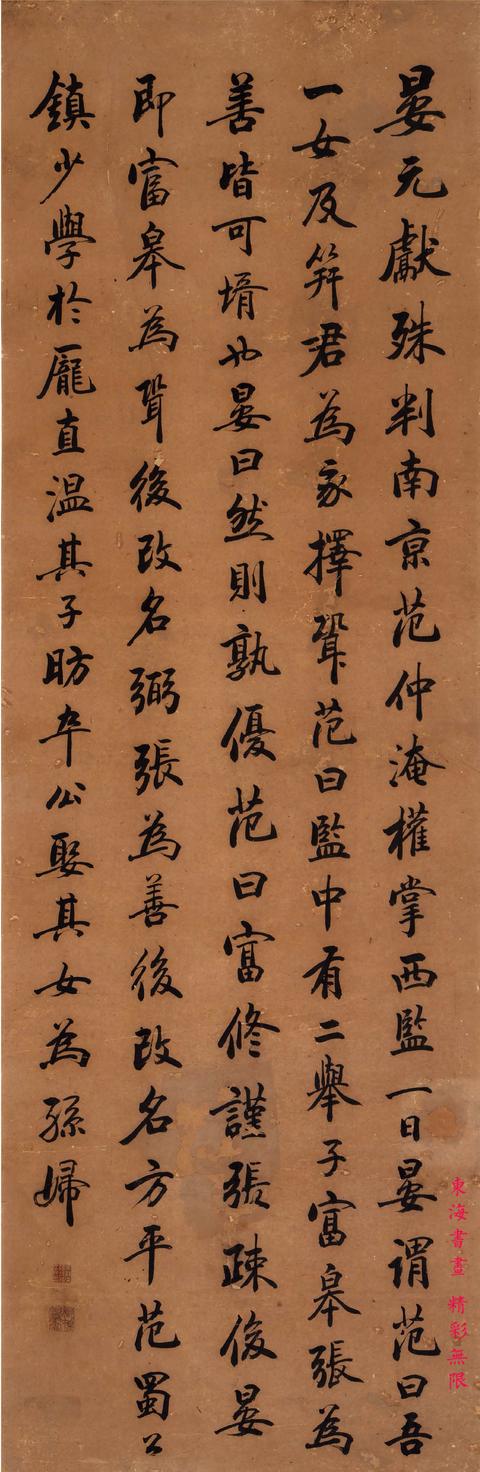 晏元獻殊判南京范仲淹權掌西監一日晏謂范曰吾
一女及笄君為我擇壻范曰監中有二舉子富皋張為
善皆可壻也晏曰然則孰優范曰富修謹張疎俊晏
即富皋為壻後改名弼張為善後改名方平范蜀公
鎮少學於龐直溫其子昉卒公娶其女為孫婦
東海書畫 精彩無限